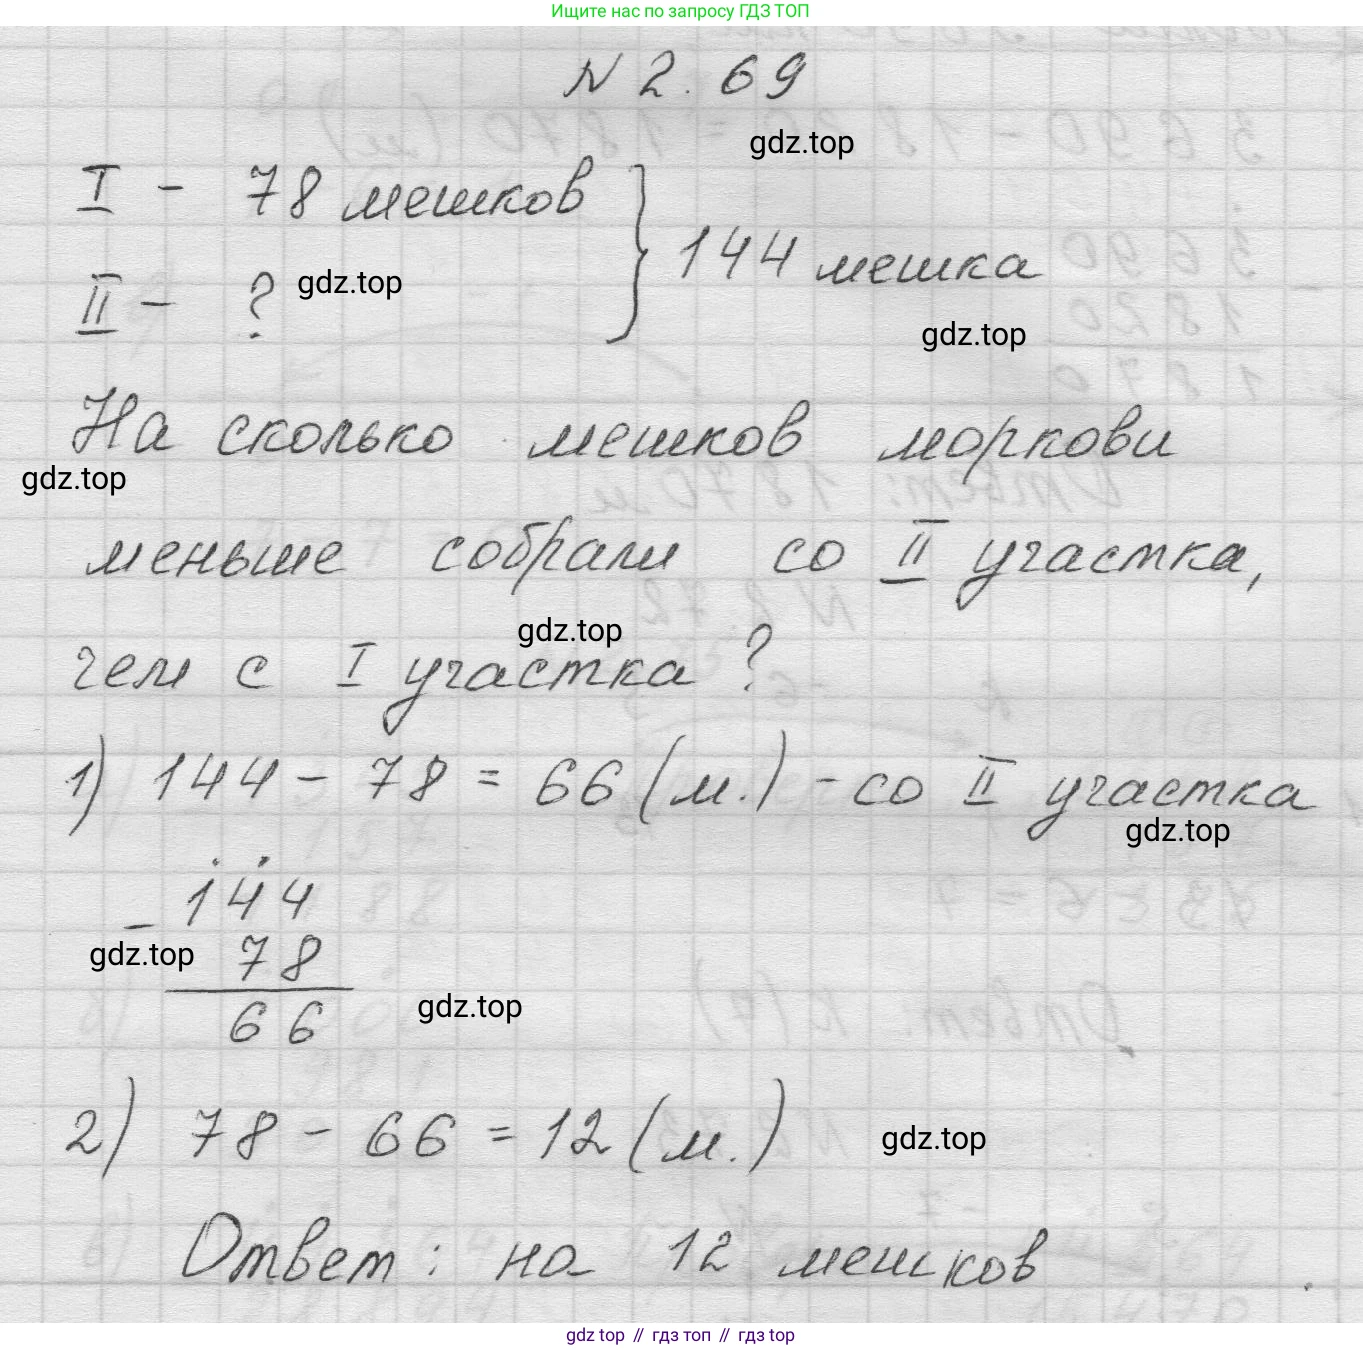 Ищите нас по запросу ГДЗ ТОП
N 2.69
gdz.top
I - 78 мешков
144 мешка
II - ?
gdz.top
gdz.top
На сколько мешков моркови
gdz.top
меньше собрали со II участка,
gdz.top
чем с I участка?
1) 144 - 78 = 66 (м.) - со II участка
gdz.top
- 144
gdz.top
78
66
gdz.top
2) 78 - 66 = 12 (м.)
gdz.top
Ответ: на 12 мешков
gdz.top // гдз топ // gdz top